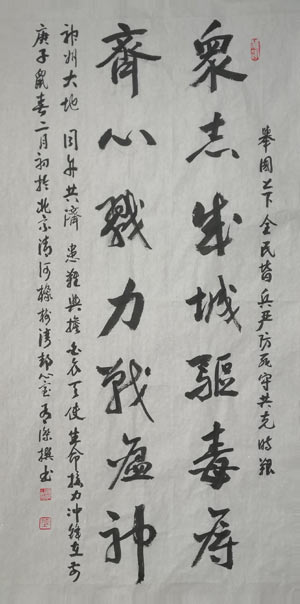 舉國上下全民皆兵严防死守共克時艱
眾志成城驅毒
齊心戮力戰瘟神
神州大地 同舟共濟 患難與擔白衣天使生命接力冲鋒在前
庚子鼠春二月初於北京清河橡樹湾静心室撰书